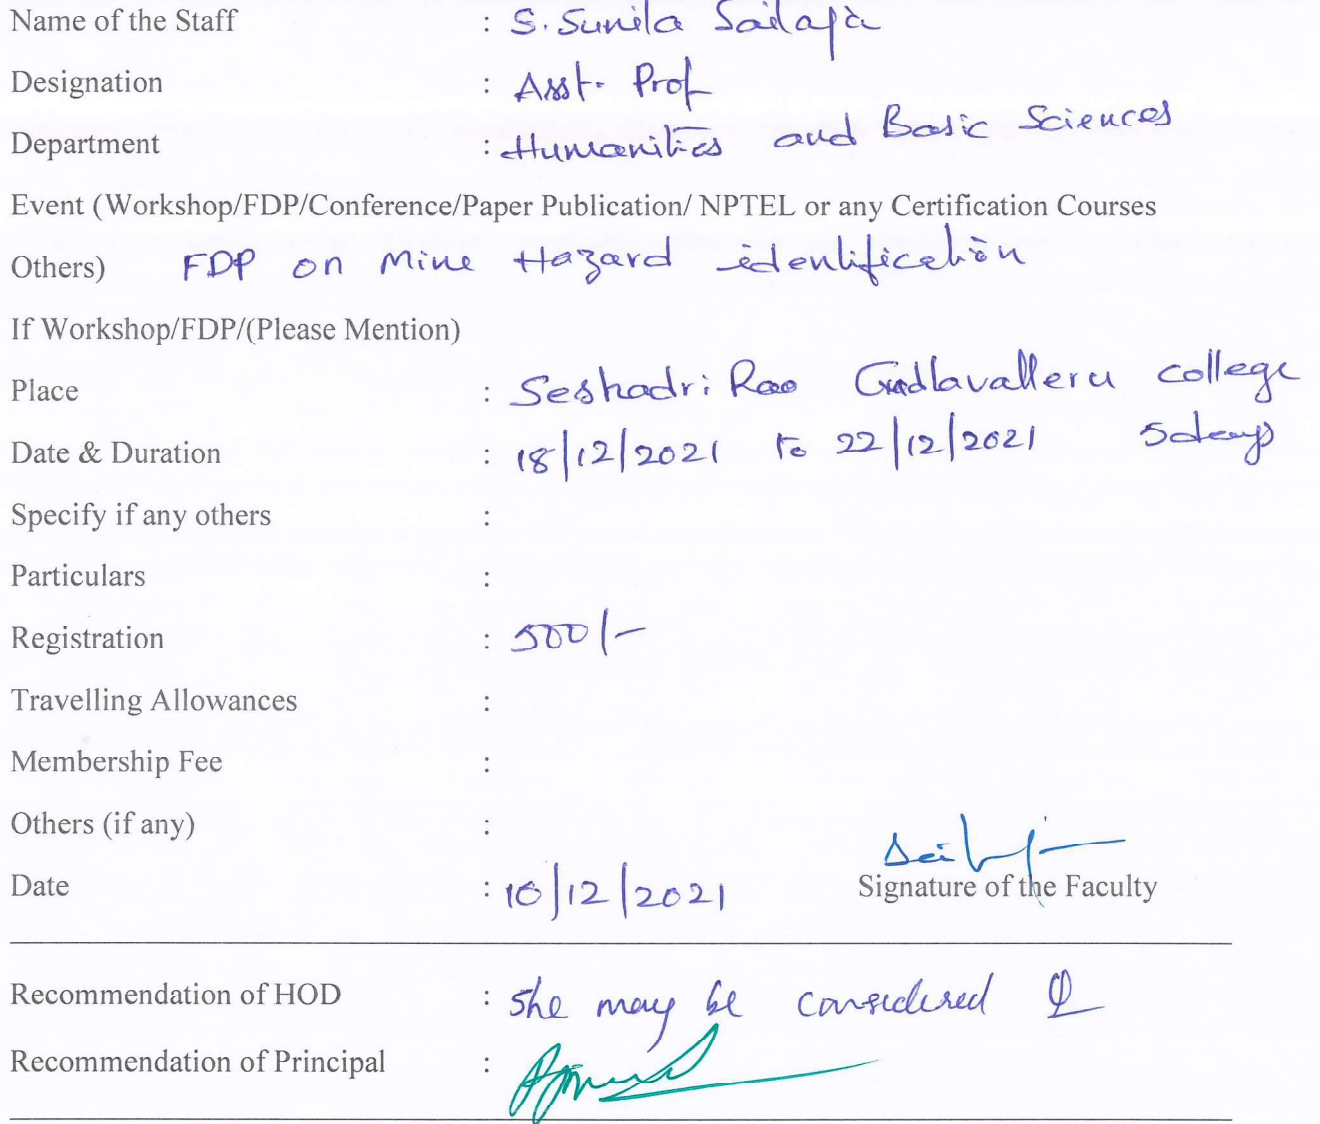 Name of the Staff : S. Sunila Sailaja
Designation : Asst. Prof
Department : Humanities and Basic Sciences
Event (Workshop/FDP/Conference/Paper Publication/ NPTEL or any Certification Courses
Others) FDP on Mine Hazard identification
If Workshop/FDP/(Please Mention)
Place : Seshadri Rao Gudlavalleru college
Date & Duration : 18/12/2021 to 22/12/2021 5 days
Specify if any others :
Particulars :
Registration : 500/-
Travelling Allowances :
Membership Fee :
Others (if any) :
Date : 10/12/2021 Signature of the Faculty
Recommendation of HOD : She may be considered
Recommendation of Principal :